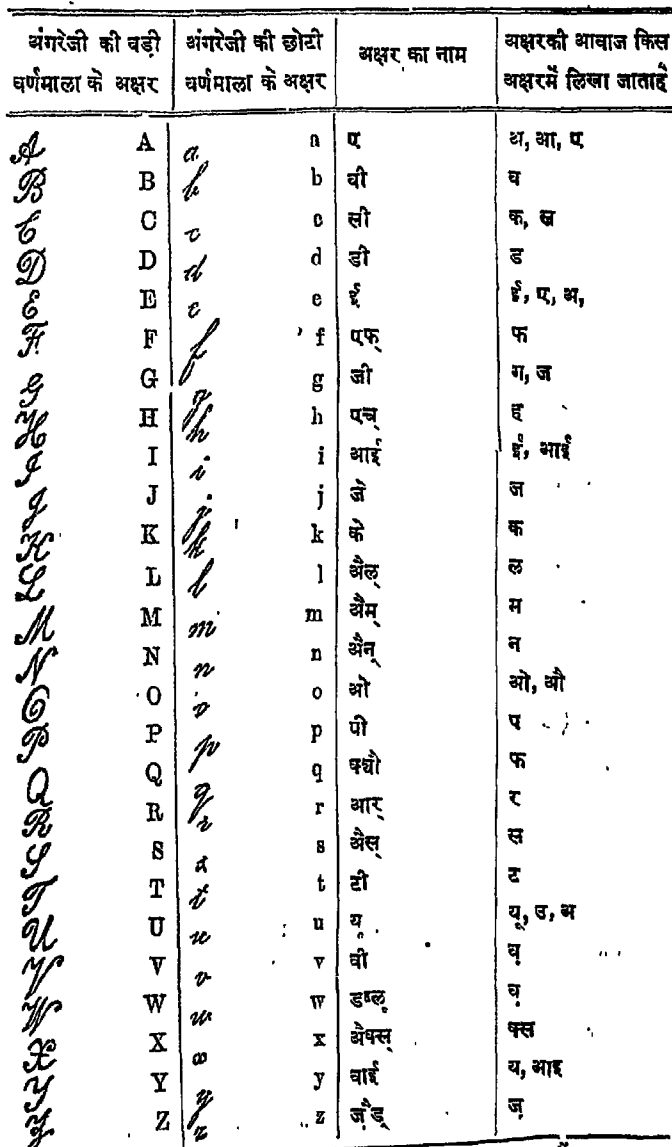 अंगरेजी की बड़ी वर्णमाला के अक्षर | अंगरेजी की छोटी वर्णमाला के अक्षर | अक्षर का नाम | अक्षरकी आवाज किस अक्षरमें लिखा जाताहै
A A | a a | ए | अ, आ, ए
B B | b b | बी | ब
C C | c c | सी | क, स
D D | d d | डी | ड
E E | e e | ई | ई, ए, अ,
F F | f f | एफ् | फ
G G | g g | जी | ग, ज
H H | h h | एच् | ह
I I | i i | आई | ई, आई
J J | j j | जे | ज
K K | k k | के | क
L L | l l | अैल् | ल
M M | m m | अैम् | म
N N | n n | अैन् | न
O O | o o | ओ | ओ, औ
P P | p p | पी | प
Q Q | q q | क्यौ | क
R R | r r | आर् | र
S S | s s | अैस् | स
T T | t t | टी | ट
U U | u u | यू | यू, उ, अ
V V | v v | वी | व़
W W | w w | डब्लू | व़
X X | x x | अैक्स् | क्स
Y Y | y y | वाई | य, आइ
Z Z | z z | ज़ैड् | ज़